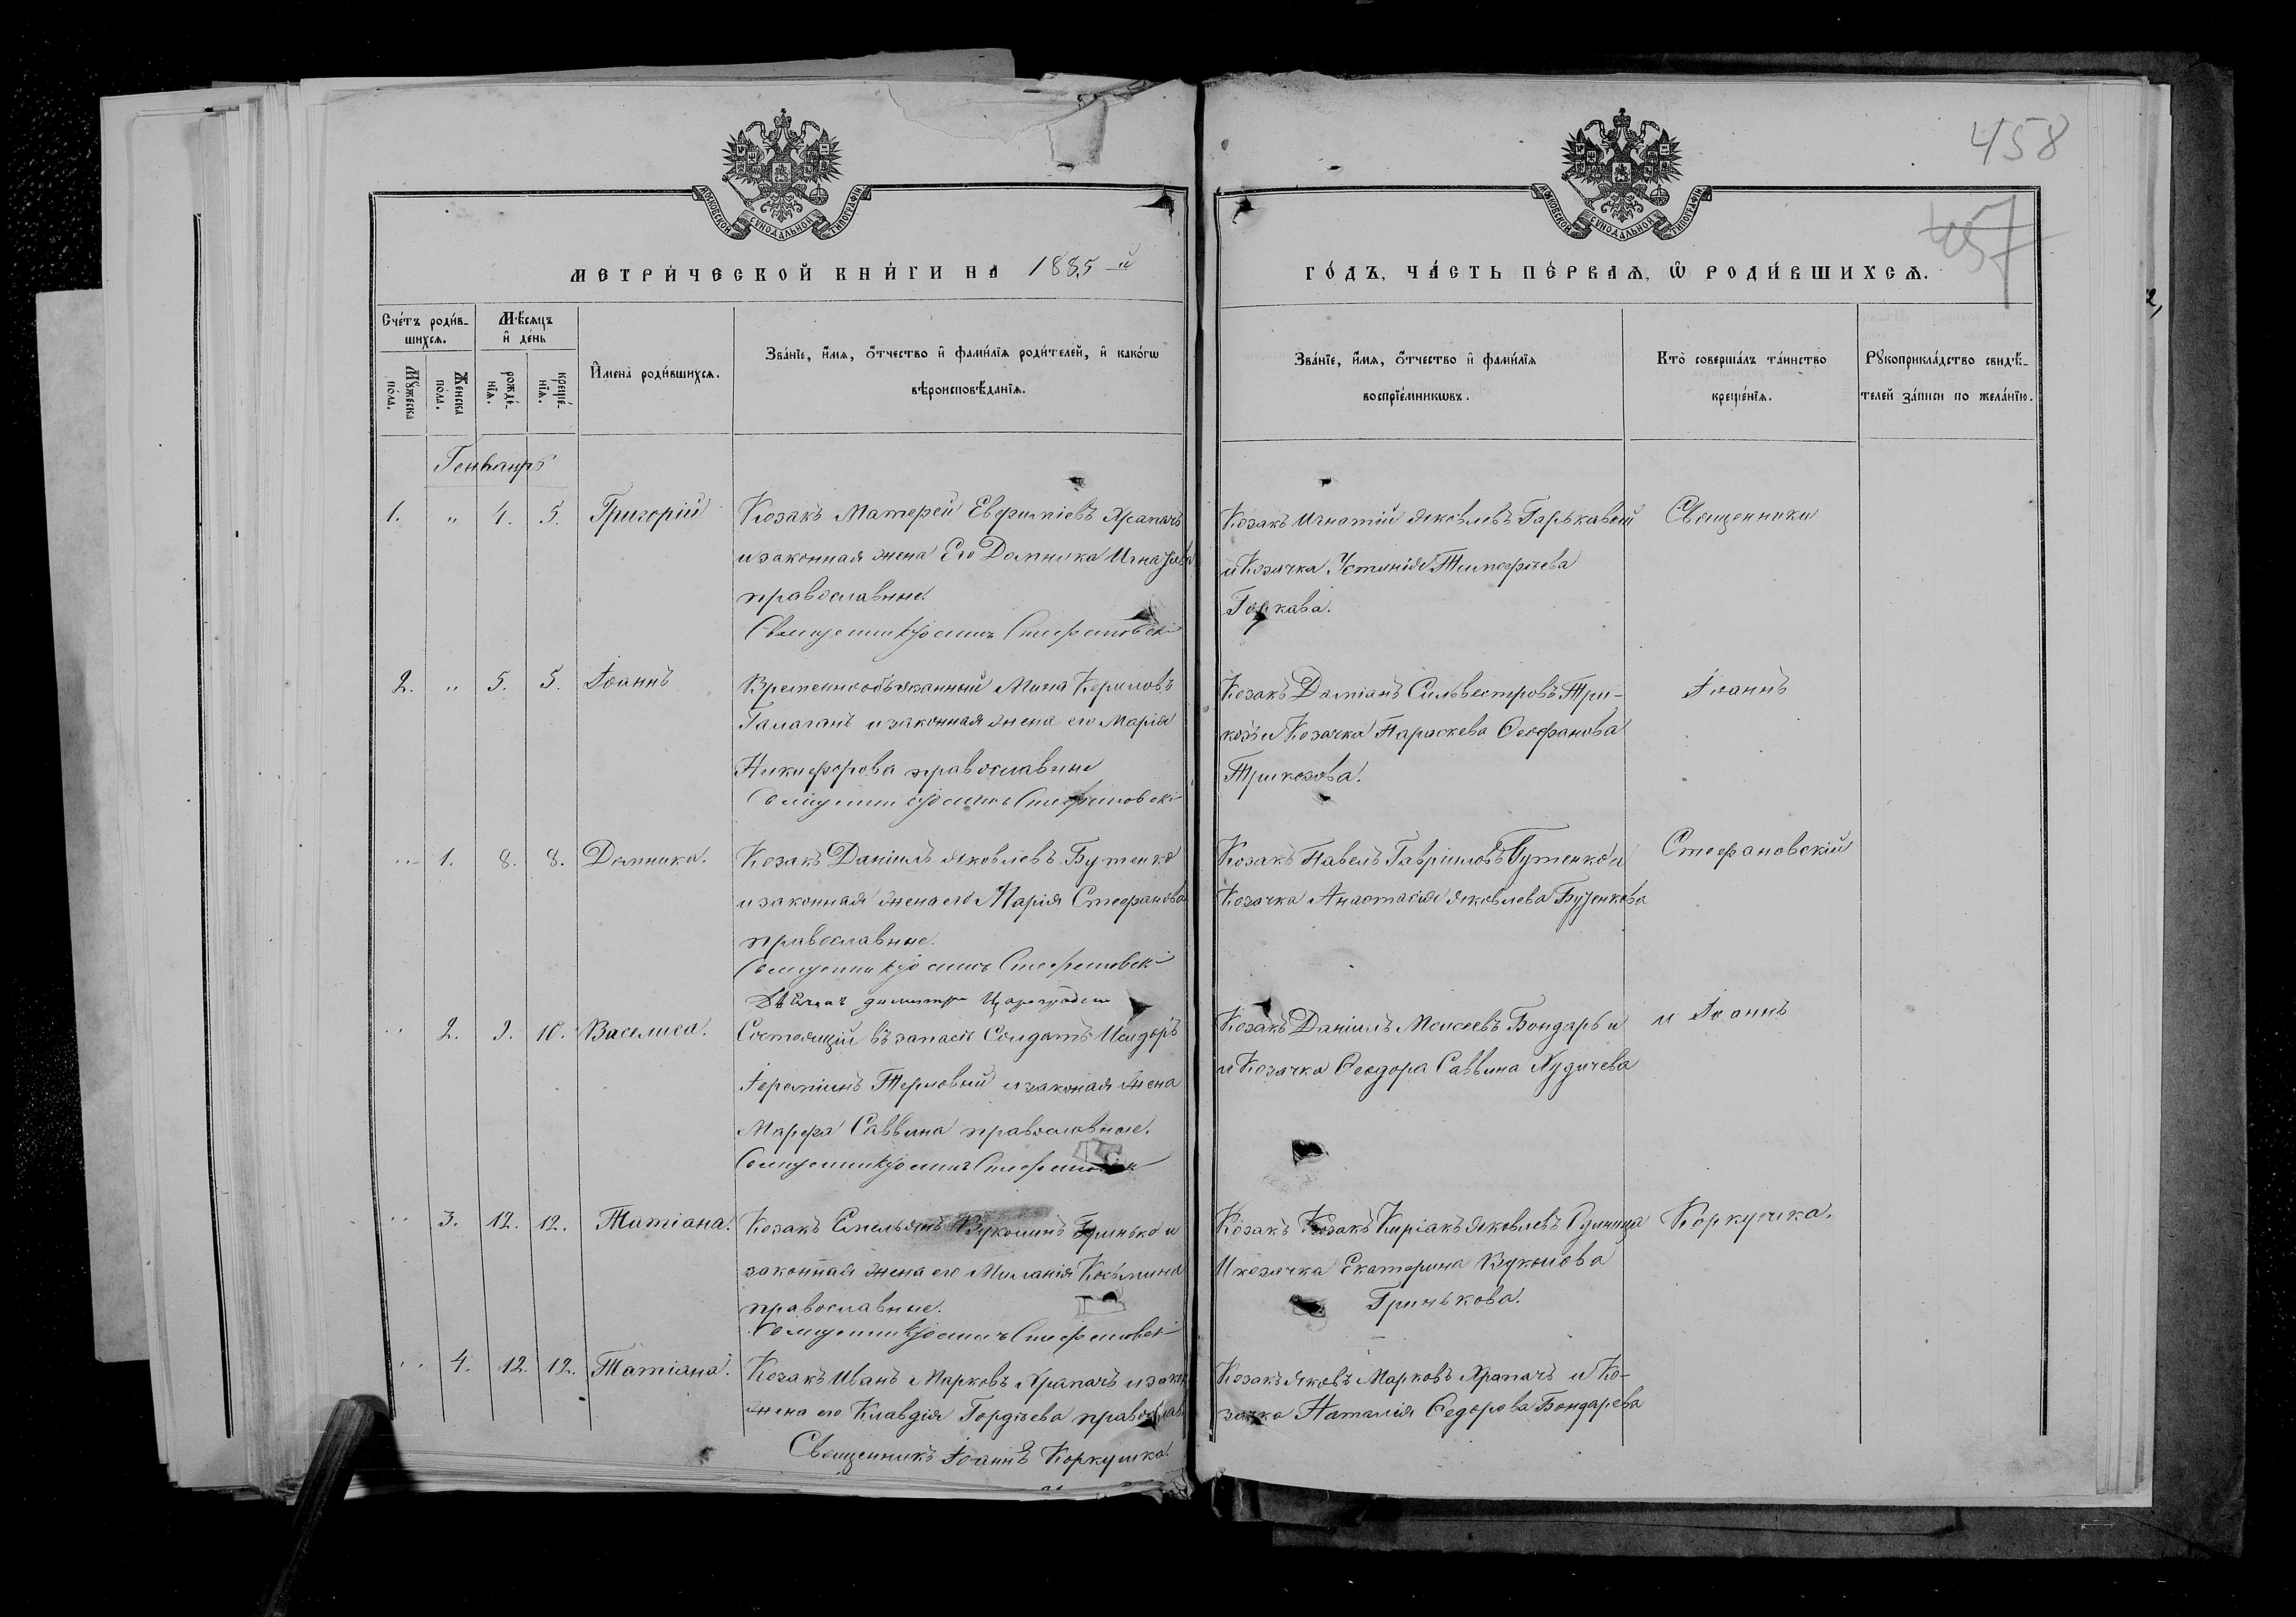 458
457
МОСКОВСКОЙ СѴНОДАЛЬНОЙ ТИПОГРАФІИ
МОСКОВСКОЙ СѴНОДАЛЬНОЙ ТИПОГРАФІИ
МЕТРИ́ЧЕСКОЙ КНИ́ГИ НА 1885-й
ГО́ДЪ, ЧА́СТЬ ПЕ́РВАѦ, Ѡ҆ РОДИ́ВШИХСѦ.
Сче́тъ роди́в-
шихсѧ.
Мꙋ́жеска по́ла.
Же́нска по́ла.
Мѣ́сѧцъ
и҆ де́нь
рожде́-
нїѧ.
креще́-
нїѧ.
И҆мена̀ роди́вшихсѧ.
Зва́нїе, и҆́мѧ, ѻ҆́тчество и҆ фами́лїѧ роди́телей, и҆ како́гѡ
вѣроисповѣ́данїѧ.
Зва́нїе, и҆́мѧ, ѻ҆́тчество и҆ фами́лїѧ
воспрїе́мникѡвъ.
Кто̀ соверша́лъ та́инство
креще́нїѧ.
Рꙋкоприкла́дство свидѣ́-
телей за́писи по жела́нїю.
Генварь
1. " 4. 5. Григорій
Козакъ Матфей Евфиміевъ Храпачъ
и законная жена Его Домника Игнатіева
православные.
Священникъ Іоаннъ Стефановскій
Козакъ Игнатій Яковлевъ Гарькавый
и Козачка Устинія Тимофѣева
Горкава.
Священники
2. " 5. 5. Іоаннъ
Временнообязанный Мина Кириловъ
Галаганъ и законная жена его Марія
Никифорова православные
Священникъ Іоаннъ Стефановскій
Козакъ Даміанъ Сильвестровъ Три-
козъ и Козачка Параскева Феофанова
Трикозова.
Іоаннъ
" 1. 8. 8. Домника.
Козакъ Даніилъ Яковлевъ Бутенко
и законная жена его Марія Стефанова
православные.
Священникъ Іоаннъ Стефановскій
Козакъ Павелъ Гавріиловъ Бутенко и
Козачка Анастасія Яковлева Бутенкова
Стефановскій
" 2. 9. 10. Василиса.
Состоящій въ запасѣ Солдатъ Исидоръ
Іереміинъ Терновый и законая жена
Марфа Саввина православные.
Священникъ Іоаннъ Стефановскій
Козакъ Даніилъ Моисеевъ Бондарь и
и Козачка Феодора Саввина Худичева
и Іоаннъ
" 3. 12. 12. Татіана.
Козакъ Емельянъ Вуколинъ Гринько и
законная жена его Миланія Косьмина
православные.
Священникъ Іоаннъ Стефановскій
Козакъ Козакъ Киріакъ Яковлевъ Одиница
И козачка Екатерина Вуколова
Гринькова.
Коркушка.
" 4. 12. 12. Татіана.
Козакъ Иванъ Марковъ Храпачъ и закон
жена его Клавдія Гордѣева православ
Священникъ Іоаннъ Коркушка.
Козакъ Яковъ Марковъ Храпачъ и Ко-
зачка Наталія Федорова Бондарева